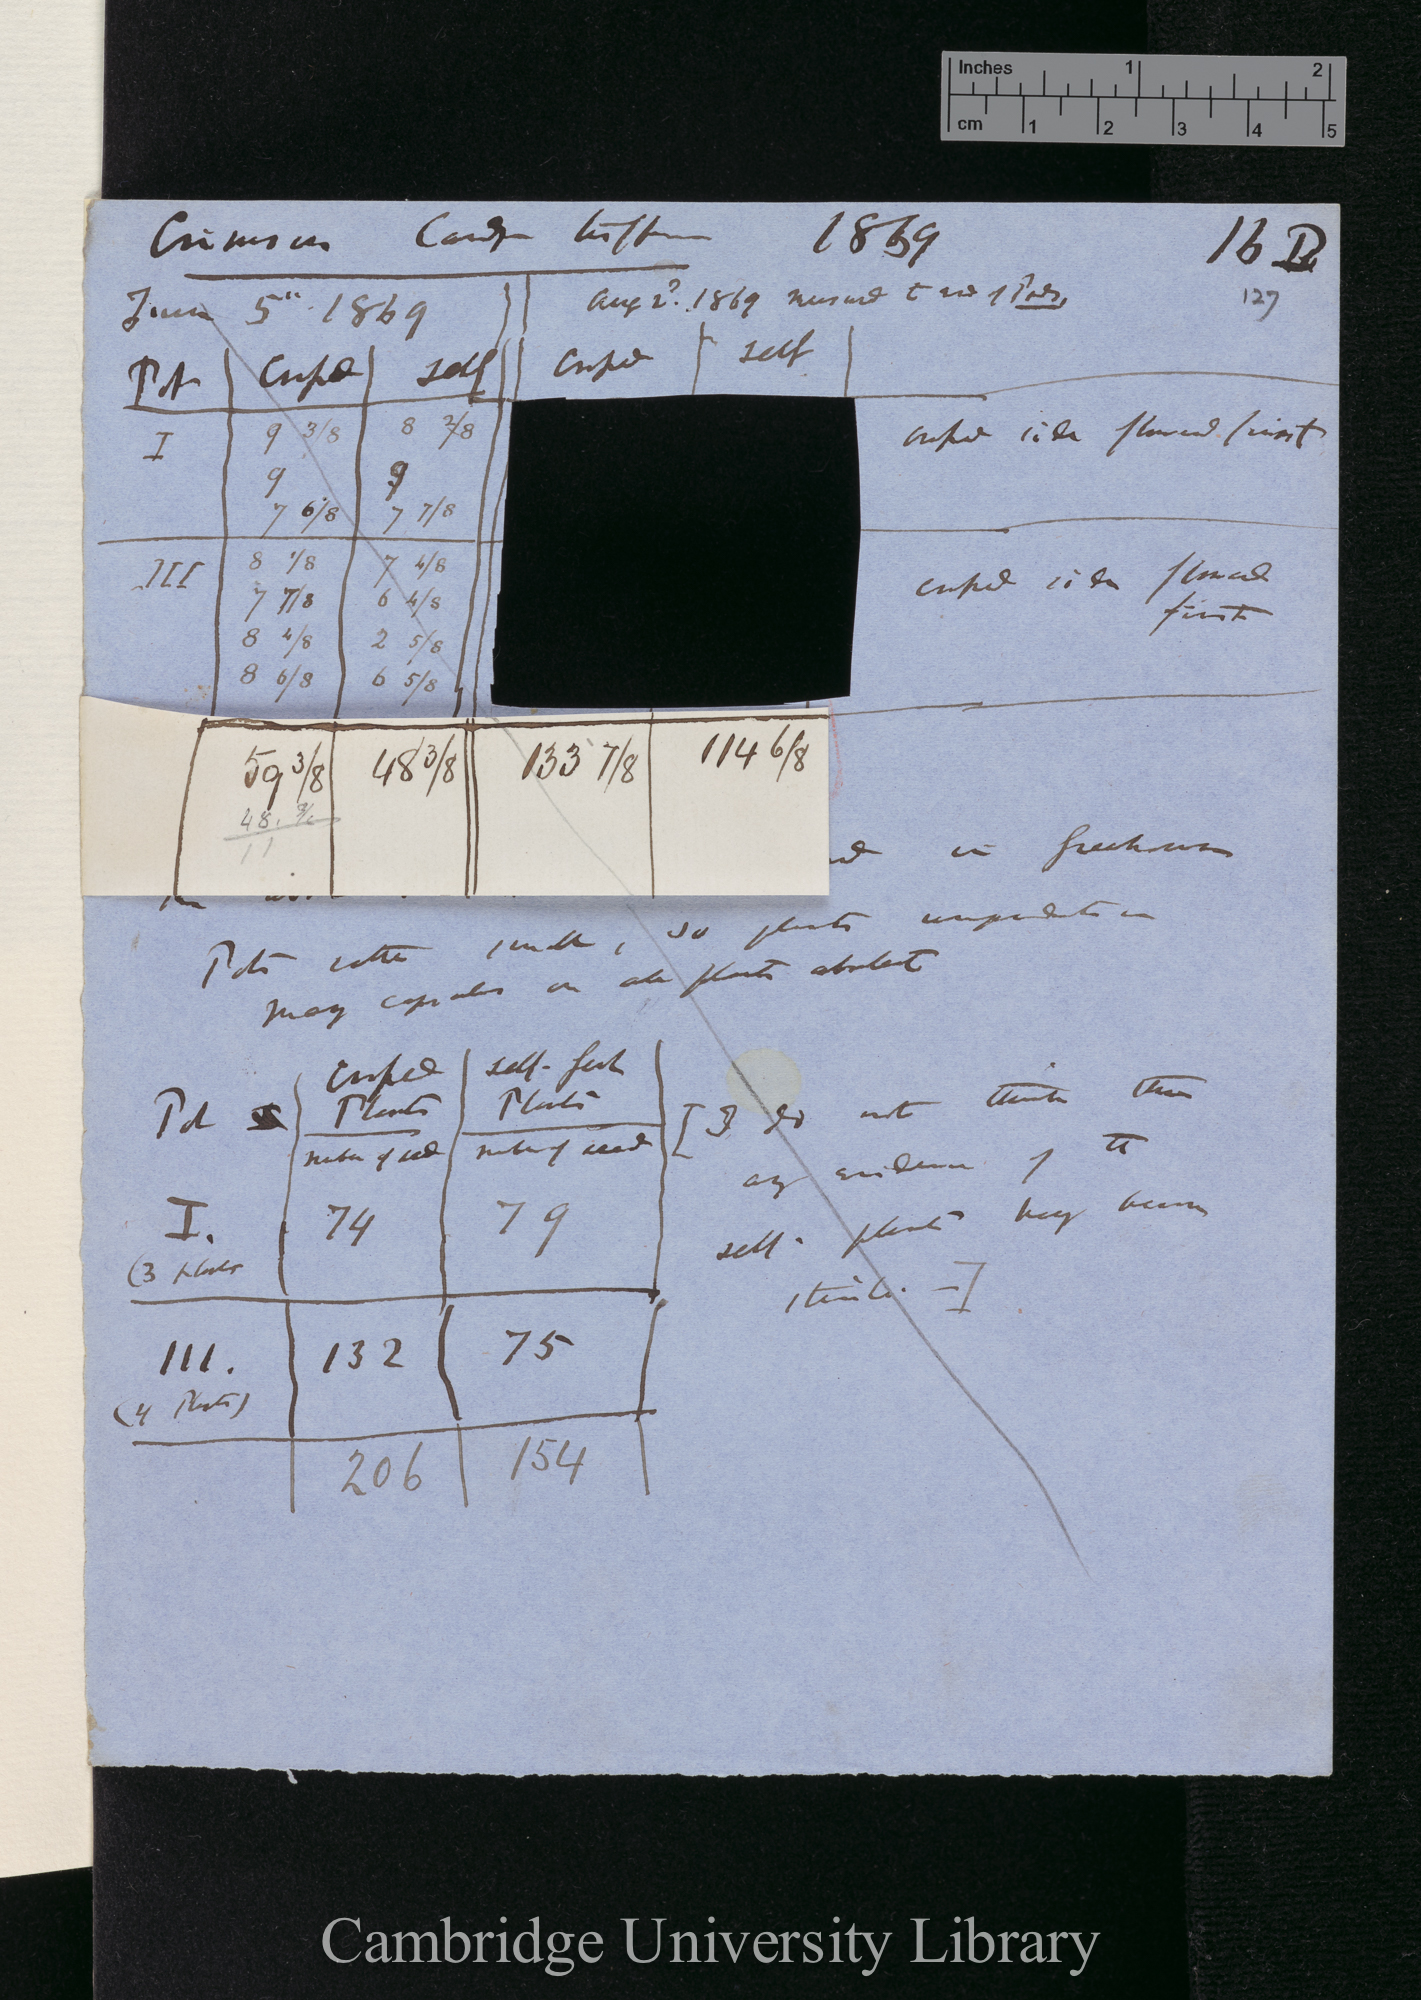 Inches 1 2
cm 1 2 3 4 5
Crimson Candy tuft 1869 16 B
127
June 5th 1869
Aug 2d. 1869 measured to end of Pods,
Pot Crossed self Crossed self
I 9 3/8 8 2/8 crossed side flowered first
9 9
7 6/8 7 7/8
III 8 1/8 7 4/8 crossed side flowered
7 7/8 6 4/8 first
8 4/8 2 5/8
8 6/8 6 5/8
59 3/8 48 3/8 133 7/8 114 6/8
48.
11
in Greenhouse
Pots rather small, so plants
many capsules on all plants
Crossed self-fert
Pot Plants Plants
number of seed number of seed
[I do not think there
any evidence of the
self-plants having become
sterile. —]
I. 74 79
(3 plants
III. 132 75
(4 Plants)
206 154
Cambridge University Library